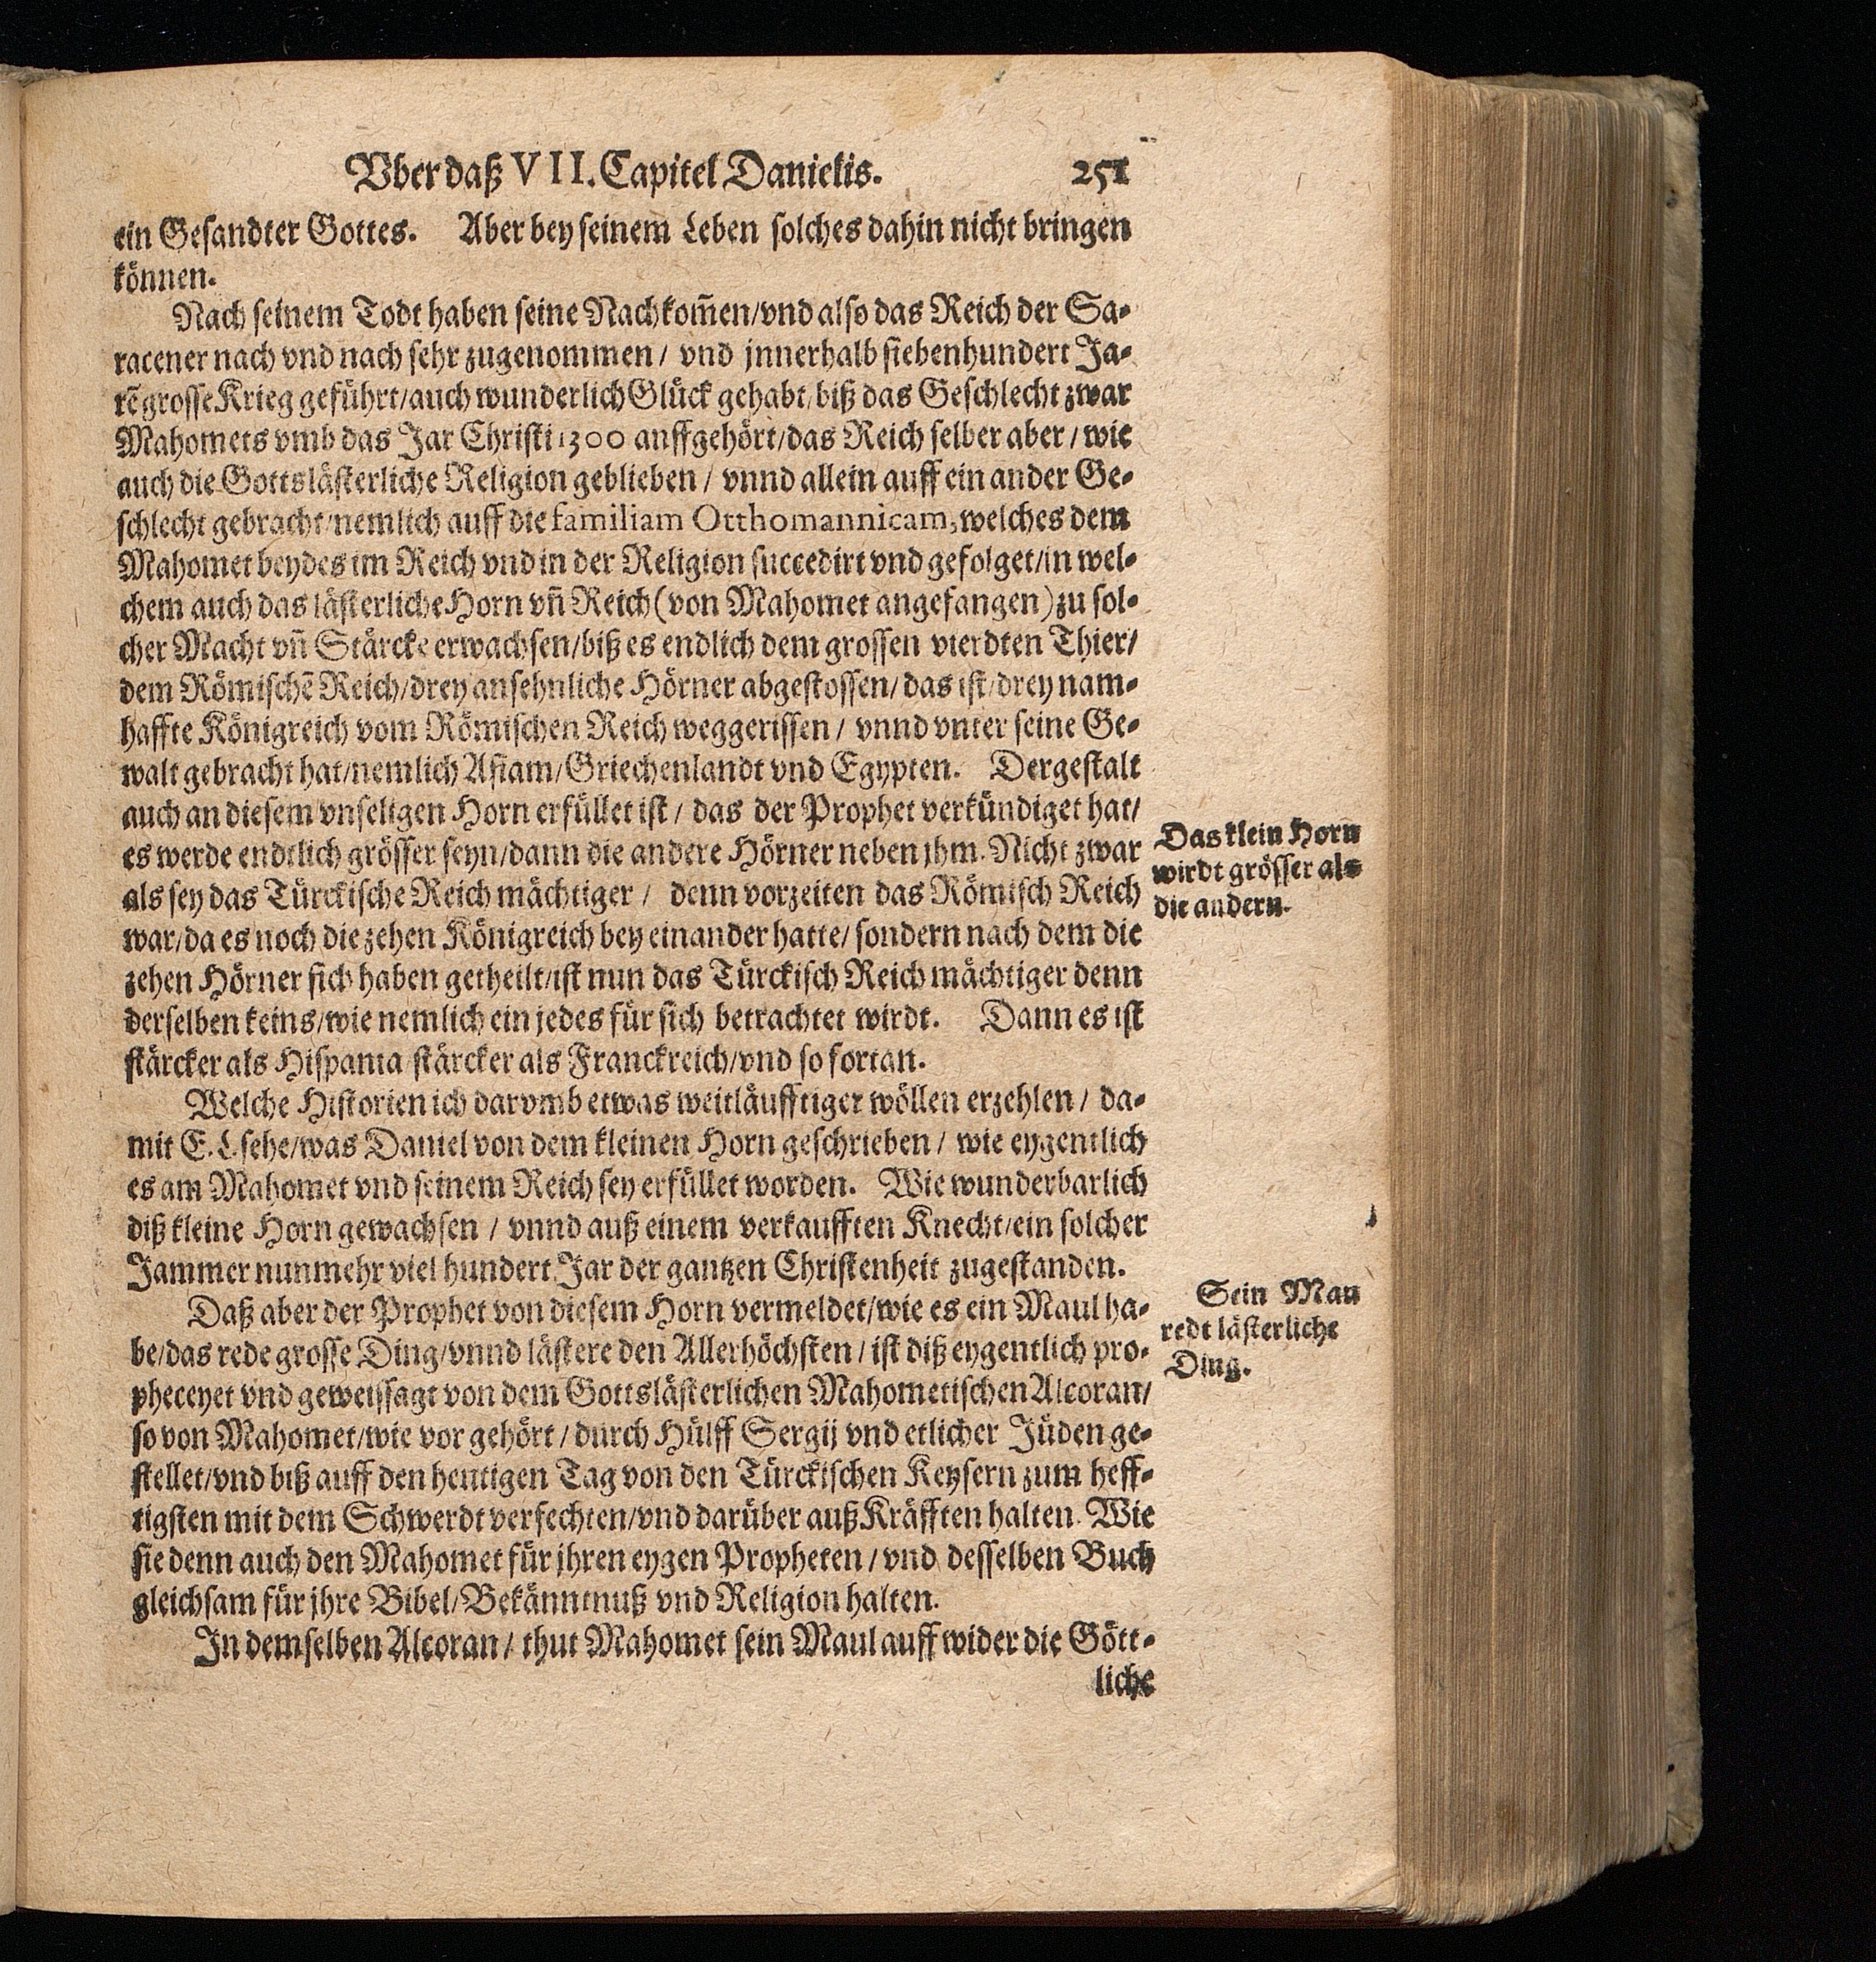 Vber daß VII. Capitel Danielis. 251
ein Gesandter Gottes. Aber bey seinem Leben solches dahin nicht bringen
können.
Nach seinem Todt haben seine Nachkom̃en/vnd also das Reich der Sa-
racener nach vnd nach sehr zugenommen/ vnd jnnerhalb siebenhundert Ja-
rẽ grosse Krieg geführt/auch wunderlich Glück gehabt/biß das Geschlecht zwar
Mahomets vmb das Jar Christi 1300 auffgehört/das Reich selber aber/ wie
auch die Gottslästerliche Religion geblieben/ vnnd allein auff ein ander Ge-
schlecht gebracht/nemlich auff die familiam Otthomannicam, welches dem
Mahomet beydes im Reich vnd in der Religion succedirt vnd gefolget/in wel-
chem auch das lästerliche Horn vñ Reich (von Mahomet angefangen) zu sol-
cher Macht vñ Stärcke erwachsen/biß es endlich dem grossen vierdten Thier/
dem Römischẽ Reich/drey ansehnliche Hörner abgestossen/das ist/drey nam-
haffte Königreich vom Römischen Reich weggerissen/ vnnd vnter seine Ge-
walt gebracht hat/nemlich Asiam/Griechenlandt vnd Egypten. Dergestalt
auch an diesem vnseligen Horn erfüllet ist/ das der Prophet verkündiget hat/
es werde endtlich grösser seyn/dann die andere Hörner neben jhm. Nicht zwar
als sey das Türckische Reich mächtiger/ denn vorzeiten das Römisch Reich
war/da es noch die zehen Königreich bey einander hatte/ sondern nach dem die
zehen Hörner sich haben getheilt/ist nun das Türckisch Reich mächtiger denn
derselben keins/wie nemlich ein jedes für sich betrachtet wirdt. Dann es ist
stärcker als Hispania/stärcker als Franckreich/vnd so fortan.
Das klein Horn
wirdt grösser als
die andern.
Welche Historien ich darvmb etwas weitläufftiger wöllen erzehlen/ da-
mit E. L. sehe/was Daniel von dem kleinen Horn geschrieben/ wie eygentlich
es am Mahomet vnd seinem Reich sey erfüllet worden. Wie wunderbarlich
diß kleine Horn gewachsen/ vnnd auß einem verkaufften Knecht/ein solcher
Jammer nunmehr viel hundert Jar der gantzen Christenheit zugestanden.
Daß aber der Prophet von diesem Horn vermeldet/wie es ein Maul ha-
be/das rede grosse Ding/vnnd lästere den Allerhöchsten/ ist diß eygentlich pro-
pheceyet vnd geweissagt von dem Gottslästerlichen Mahometischen Alcoran/
so von Mahomet/wie vor gehört/ durch Hülff Sergij vnd etlicher Jüden ge-
stellet/vnd biß auff den heutigen Tag von den Türckischen Keysern zum heff-
tigsten mit dem Schwerdt verfechten/vnd darüber auß Kräfften halten. Wie
sie denn auch den Mahomet für jhren eygen Propheten/ vnd desselben Buch
gleichsam für jhre Bibel/Bekänntnuß vnd Religion halten.
Sein Mau
redt lästerliche
Ding.
In demselben Alcoran/ thut Mahomet sein Maul auff wider die Gött-
liche